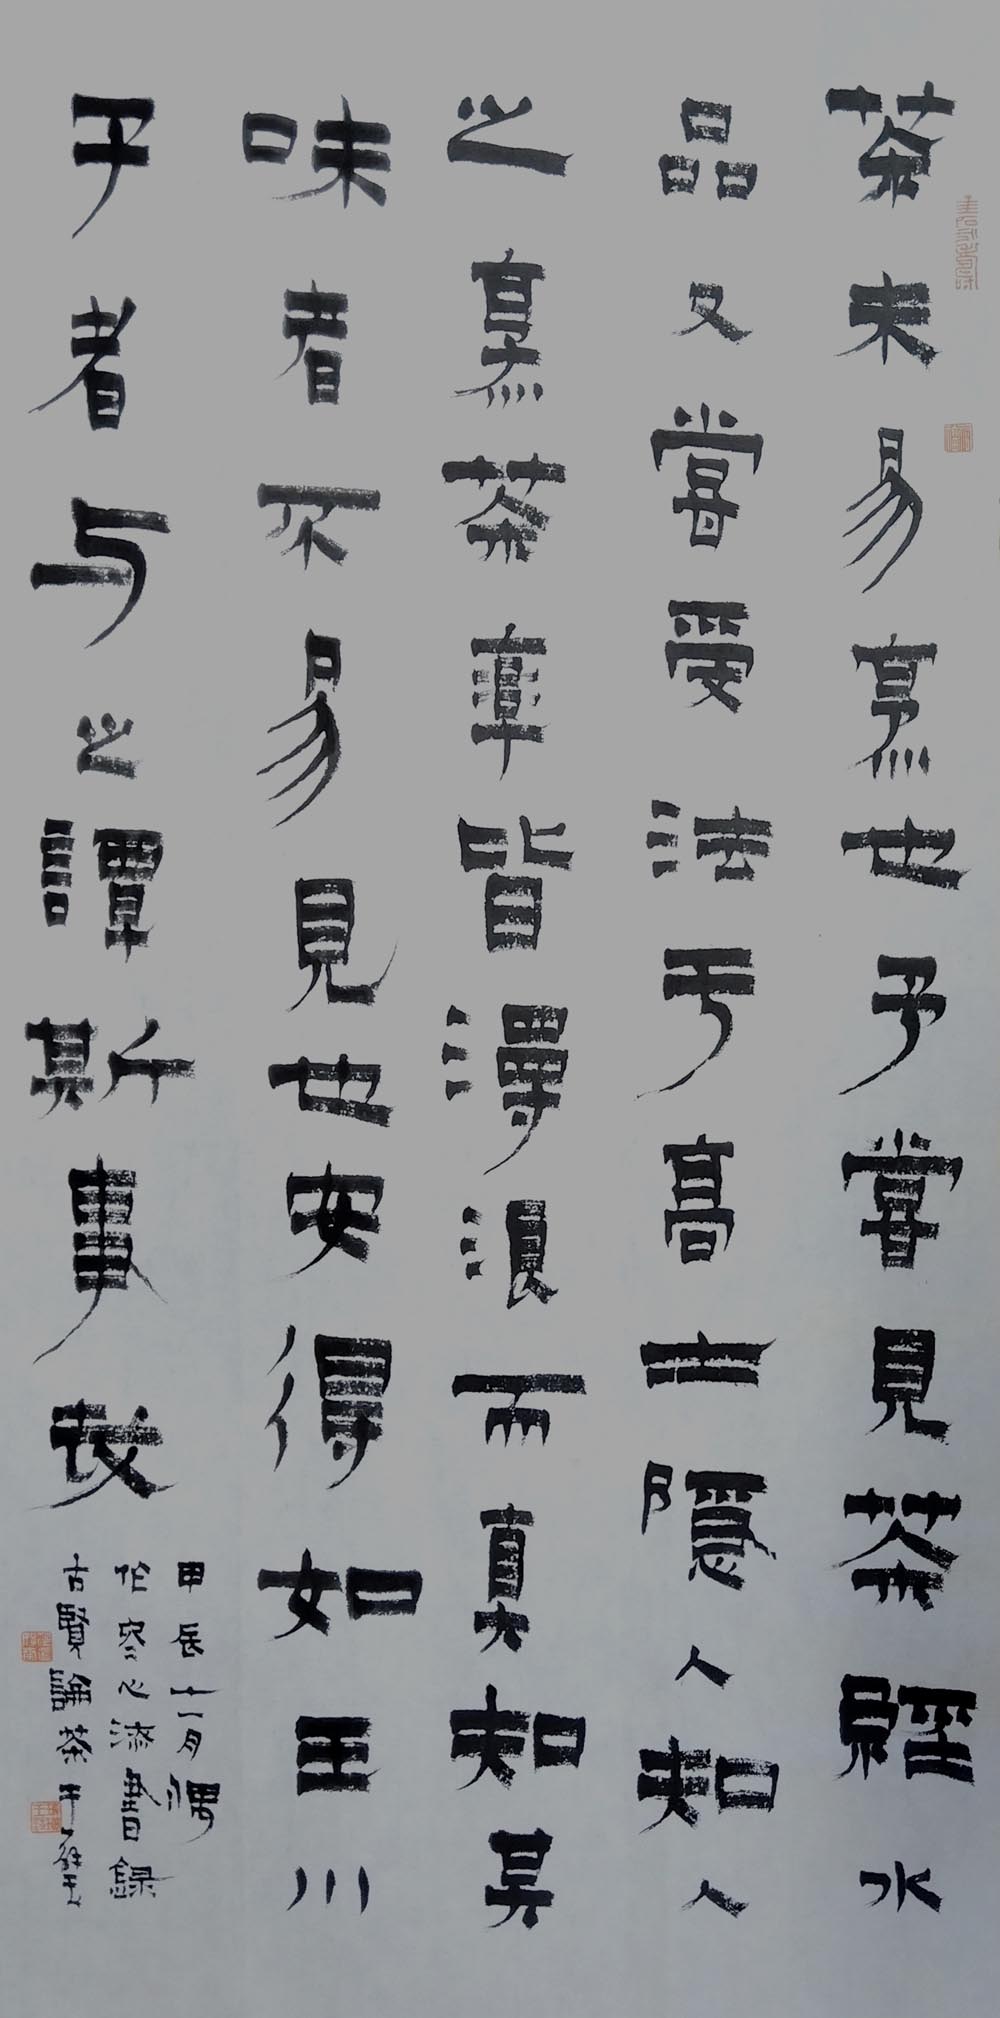 茶未易烹也予嘗見茶經水
品又嘗受法于高士隱人知人
之烹茶率皆漫浪而真知其
味者不易見也安得如玉川
子者与之譚斯事哉
甲辰十一月偶
作容心漆書録
古賢論茶于